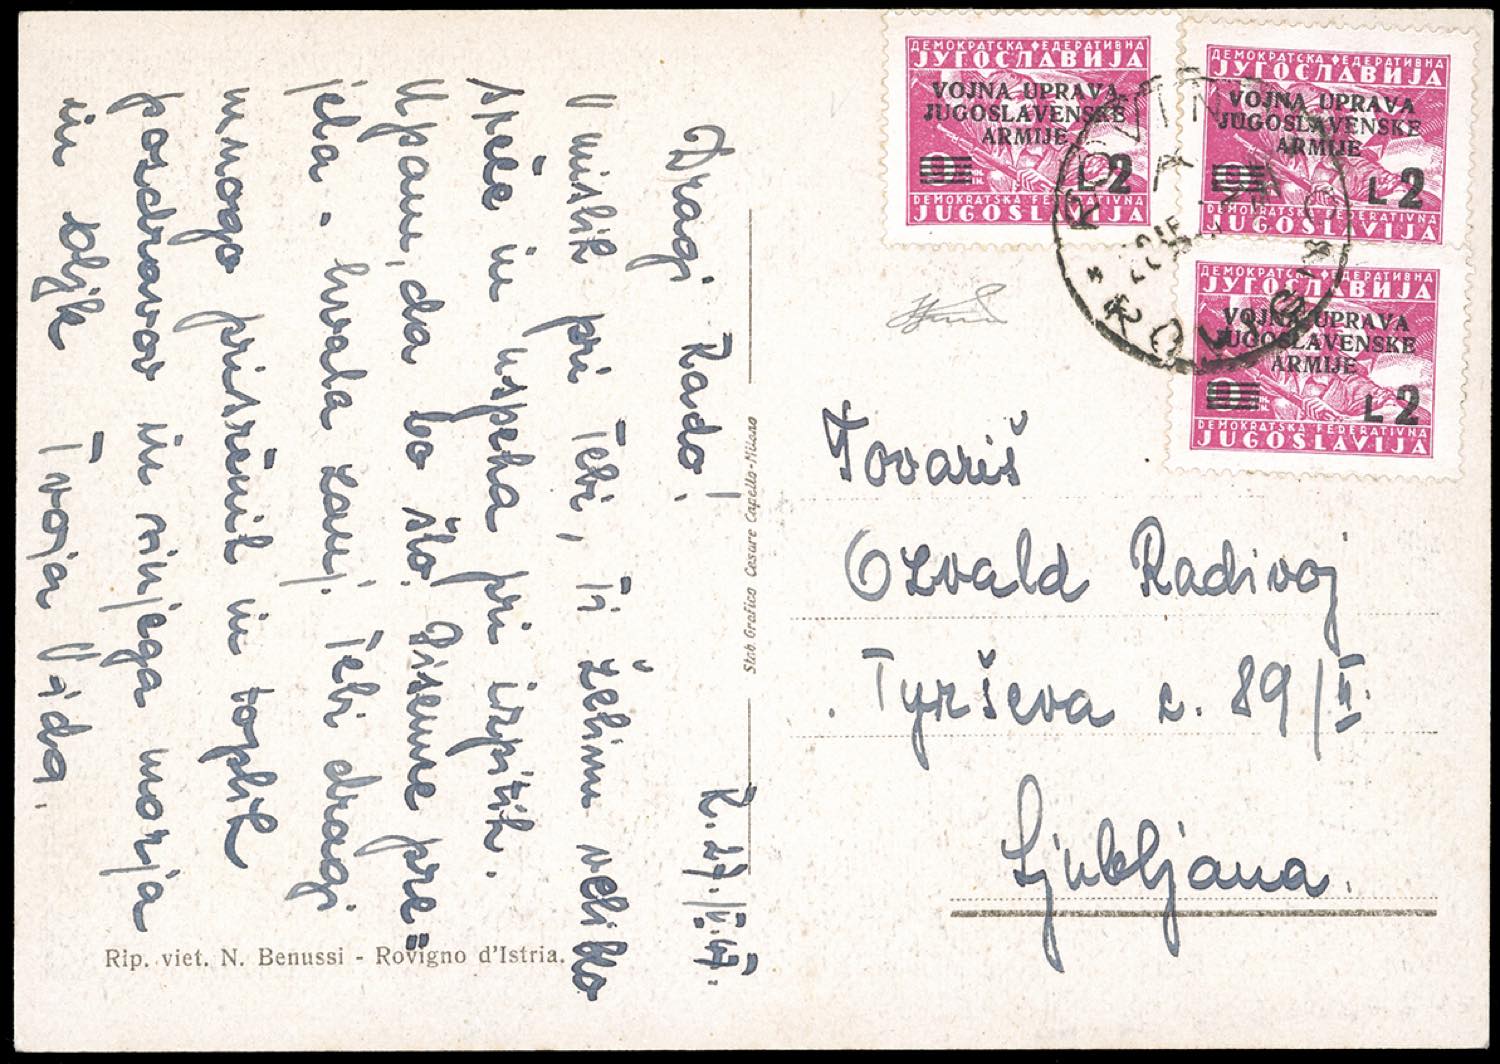 R. 27./VI.47.
Dragi Rado!
V mislih pri Tebi, Ti želim veliko
sreče in uspeha pri izpitih.
Upam, da bo šlo. Pisemce pre=
jela. hvala zanj. Tebi dragi
mnogo prisrčnih in toplih
pozdravov in sinjega morja
in oljk Tvoja Vida.
Rip. viet. N. Benussi - Rovigno d'Istria.
Stab. Grafico Cesare Capello-Milano
ДЕМОКРАТСКА ФЕДЕРАТИВНА
ЈУГОСЛАВИЈА
VOJNA UPRAVA
JUGOSLAVENSKE
ARMIJE
L 2
DEMOKRATSKA FEDERATIVNA
JUGOSLAVIJA
ДЕМОКРАТСКА ФЕДЕРАТИВНА
ЈУГОСЛАВИЈА
VOJNA UPRAVA
JUGOSLAVENSKE
ARMIJE
L 2
DEMOKRATSKA FEDERATIVNA
JUGOSLAVIJA
ДЕМОКРАТСКА ФЕДЕРАТИВНА
ЈУГОСЛАВИЈА
VOJNA UPRAVA
JUGOSLAVENSKE
ARMIJE
L 2
DEMOKRATSKA FEDERATIVNA
JUGOSLAVIJA
Tovariš
Ozvald Radivoj
Tyrševa c. 89/II.
Ljubljana.